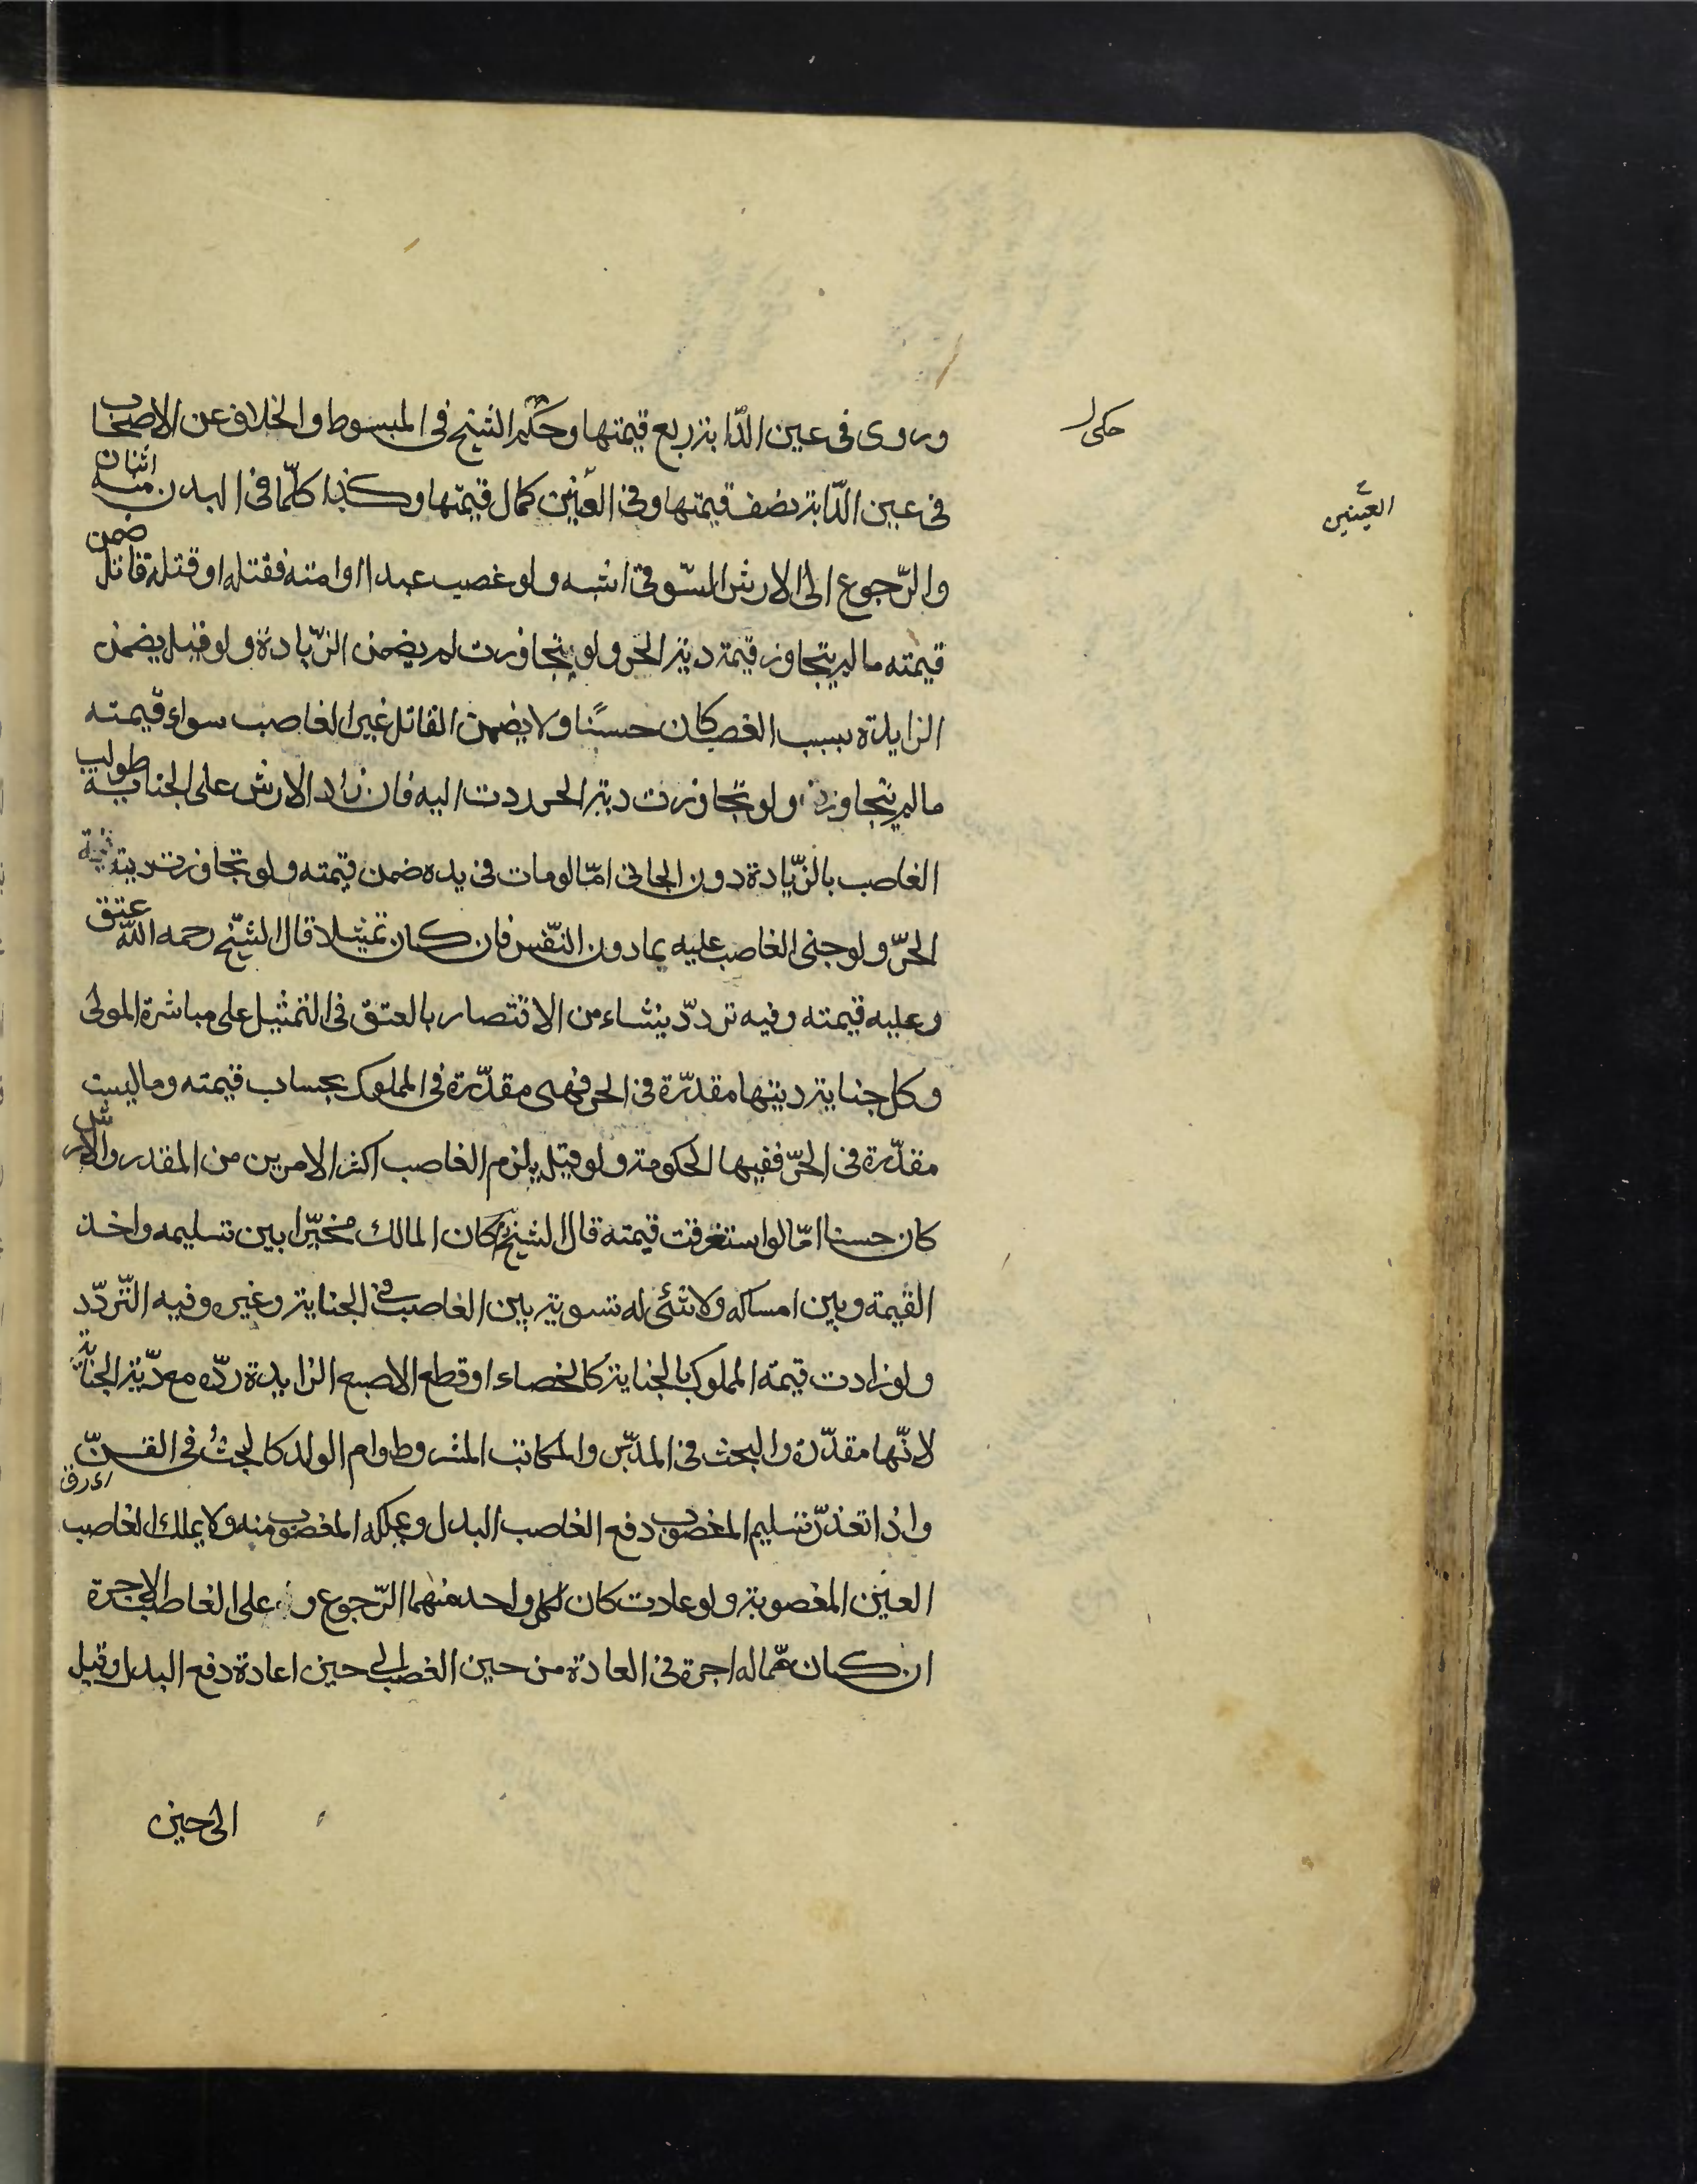 وروى فى عين الدّابة ربع قيمتها وحَكم الشيخ فى المبسوط والخلاف عن الاصحاب
حكى
فى عين الدّابة نصف قيمتها وفى العَينين كمال قيمتها وكذا كلّما فى البدن منه اثنان
العَينين
والرّجوع الى الارش السّوقى اشبه ولو غصب عبدا او امته فقتله او قتله قاتل ضمن
قيمته ما لم يتجاوز قيمته دية الحر ولو تجاوزت لم يضمن الزّيادة ولو قيل يضمن
الزايدة بسبب الغصب كان حسنًا ولا يضمن القاتل غير الغاصب سواء قيمته
ما لم يتجاوز ولو تجاوزت دية الحر ردت اليه فان زاد الارش على الجناية طولب
الغاصب بالزّيادة دون الجانى امّا لو مات فى يده ضمن قيمته ولو تجاوزت دية
الحرّ ولو جنى الغاصب عليه بما دون النّفس فان كان تمثيلا قال الشّيخ رحمه الله عتق
وعليه قيمته وفيه تردّد ينشاء من الاقتصار بالعتق فى التمثيل على مباشرة المولى
وكل جناية ديتها مقدّرة فى الحر فهى مقدّرة فى المملوك بحساب قيمته وما ليست
مقدّرة فى الحرّ ففيها الحكومة ولو قيل يلزم الغاصب اكثر الامرين من المقدر والارش
كان حسنا امّا لو استغرقت قيمته قال الشيخ كان المالك مخيّرا بين تسليمه واخذ
القيمة وبين امساكه ولا شئى له تسوية بين الغاصب فى الجناية وغيره وفيه التّردّد
ولو زادت قيمة المملوك بالجناية كالخصاء او قطع الاصبع الزايدة ردّه مع دّية الجناية
لانّها مقدّرة والبحث فى المدبّر والمكاتب المشروط وام الولد كالبحث فى القنّ
اى رق
واذا تعذّر تسليم المغصوب دفع الغاصب البدل ويملكه المغصوب منه ولا يملك الغاصب
العين المغصوبة ولو عادت كان لكل واحد منهما الرّجوع و على الغاصب الاجرة
ان كان ممّا له اجرة فى العادة من حين الغصب الى حين اعادة دفع البدل وقيل
الى حين